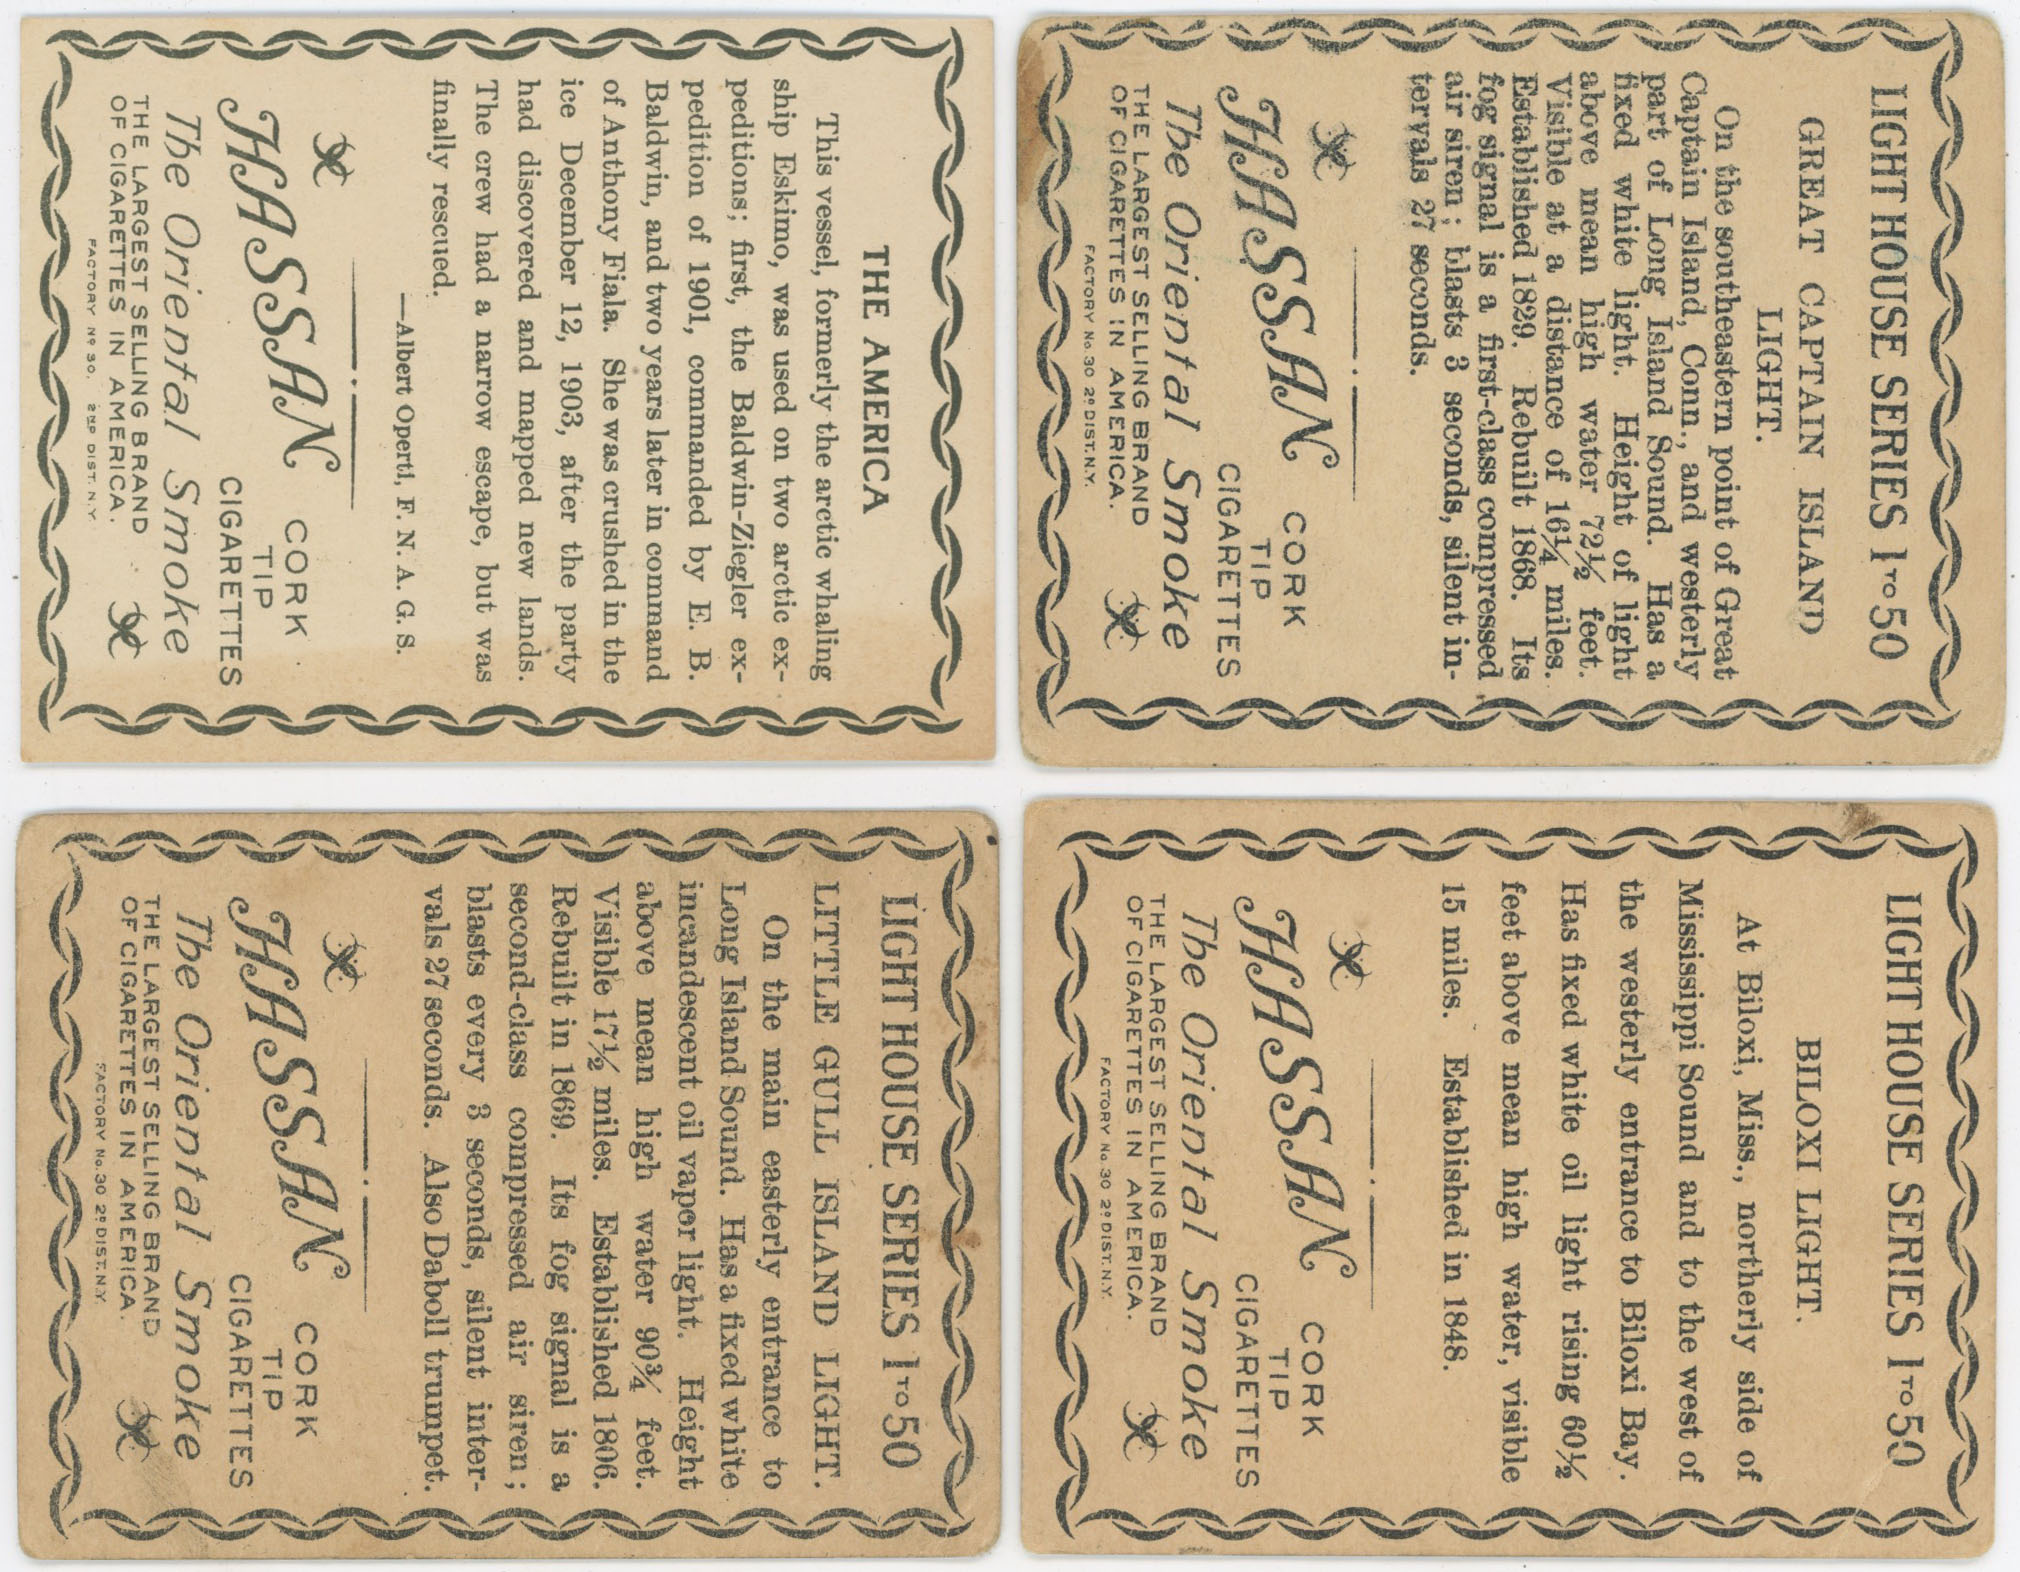 THE AMERICA
This vessel, formerly the arctic whaling
ship Eskimo, was used on two arctic ex-
peditions; first, the Baldwin-Ziegler ex-
pedition of 1901, commanded by E. B.
Baldwin, and two years later in command
of Anthony Fiala. She was crushed in the
ice December 12, 1903, after the party
had discovered and mapped new lands.
The crew had a narrow escape, but was
finally rescued.
—Albert Operti, F. N. A. G. S.
HASSAN
CORK
TIP
CIGARETTES
The Oriental Smoke
THE LARGEST SELLING BRAND
OF CIGARETTES IN AMERICA.
FACTORY Nº 30, 2ND DIST. N.Y.
LIGHT HOUSE SERIES 1 TO 50
GREAT CAPTAIN ISLAND
LIGHT.
On the southeastern point of Great
Captain Island, Conn., and westerly
part of Long Island Sound. Has a
fixed white light. Height of light
above mean high water 72½ feet.
Visible at a distance of 16¼ miles.
Established 1829. Rebuilt 1868. Its
fog signal is a first-class compressed
air siren; blasts 3 seconds, silent in-
tervals 27 seconds.
HASSAN
CORK
TIP
CIGARETTES
The Oriental Smoke
THE LARGEST SELLING BRAND
OF CIGARETTES IN AMERICA.
FACTORY No. 30 2D DIST. N.Y.
LIGHT HOUSE SERIES 1 TO 50
LITTLE GULL ISLAND LIGHT.
On the main easterly entrance to
Long Island Sound. Has a fixed white
incandescent oil vapor light. Height
above mean high water 90¾ feet.
Visible 17½ miles. Established 1806.
Rebuilt in 1869. Its fog signal is a
second-class compressed air siren;
blasts every 3 seconds, silent inter-
vals 27 seconds. Also Daboll trumpet.
HASSAN
CORK
TIP
CIGARETTES
The Oriental Smoke
THE LARGEST SELLING BRAND
OF CIGARETTES IN AMERICA.
FACTORY No. 30 2D DIST. N.Y.
LIGHT HOUSE SERIES 1 TO 50
BILOXI LIGHT.
At Biloxi, Miss., northerly side of
Mississippi Sound and to the west of
the westerly entrance to Biloxi Bay.
Has fixed white oil light rising 60½
feet above mean high water, visible
15 miles. Established in 1848.
HASSAN
CORK
TIP
CIGARETTES
The Oriental Smoke
THE LARGEST SELLING BRAND
OF CIGARETTES IN AMERICA.
FACTORY No. 30 2D DIST. N.Y.